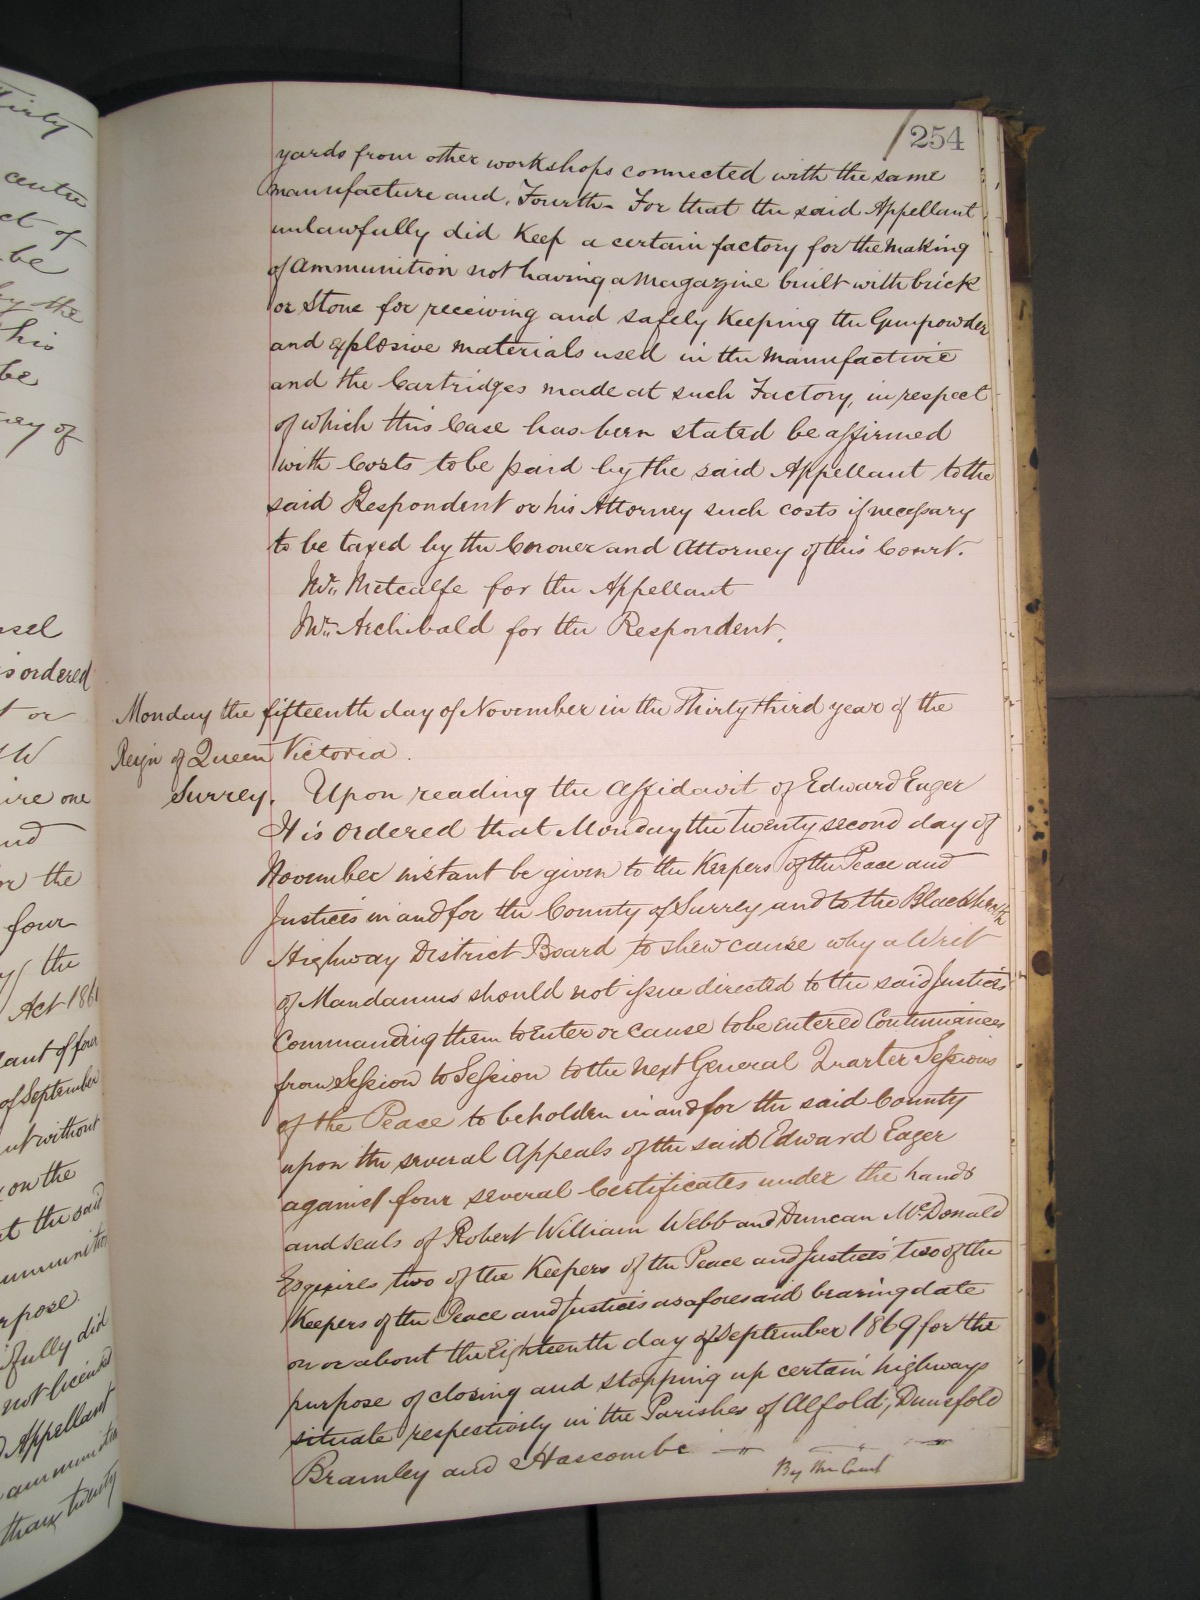 Thirty
centre
ct of
be
by the
his
be
ney of
nsel
is ordered
t or
ire one
nd
or the
four
the
Act 1861
lant of four
of September
ut without
on the
t the said
mmunition
rpose
fully did
not licensed
Appellant
ammunition
than twenty
254
yards from other workshops connected with the same
manufacture and, Fourth - For that the said Appellant
unlawfully did Keep a certain factory for the making
of ammunition not having a Magazine built with brick
or Stone for receiving and safely Keeping the Gunpowder
and explosive materials used in the Manufacture
and the Cartridges made at such Factory, in respect
of which this Case has been stated be affirmed
with Costs to be paid by the said Appellant to the
said Respondent or his Attorney such costs if necessary
to be taxed by the Coroner and Attorney of this Court.
Mr. Metcalfe for the Appellant
Mr. Archibald for the Respondent.
Monday the fifteenth day of November in the Thirty third year of the
Reign of Queen Victoria.
Surrey. Upon reading the Affidavit of Edward Eager
It is ordered that Monday the twenty second day of
November instant be given to the Keepers of the Peace and
Justices in and for the County of Surrey and to the Blackheath
Highway District Board to shew cause why a Writ
of Mandamus should not issue directed to the said Justices
Commanding them to enter or cause to be entered Continuances
from Session to Session to the next General Quarter Sessions
of the Peace to be holden in and for the said County
upon the several Appeals of the said Edward Eager
against four several Certificates under the hands
and seals of Robert William Webb and Duncan McDonald
Esquires two of the Keepers of the Peace and Justices two of the
Keepers of the Peace and Justices as aforesaid bearing date
on or about the Eighteenth day of September 1869 for the
purpose of closing and stopping up certain highways
situate respectively in the Parishes of Alfold, Dunsfold
Bramley and Hascombe
By the Court